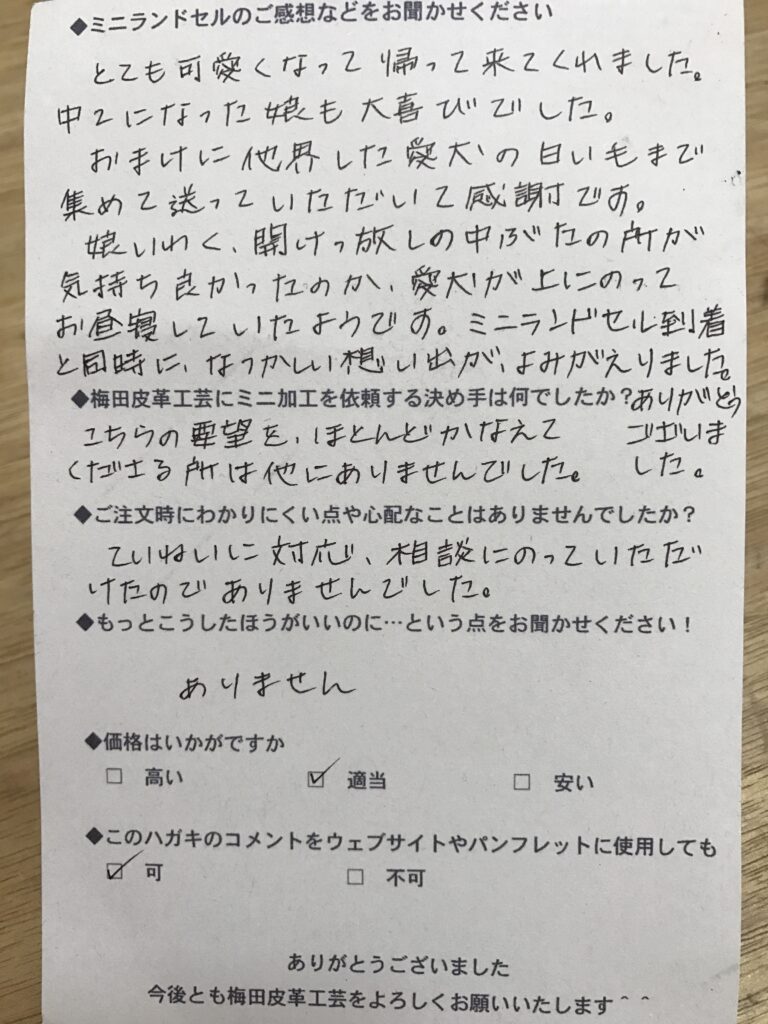 ◆ミニランドセルのご感想などをお聞かせください
とても可愛くなって帰って来てくれました。
中2になった娘も大喜びでした。
おまけに他界した愛犬の白い毛まで
集めて送っていただいて感謝です。
娘いわく、開けっ放しの中ぶたの所が
気持ち良かったのか、愛犬が上にのって
お昼寝していたようです。ミニランドセル到着
と同時に、なつかしい想い出が、よみがえりました。
ありがとう
ございま
した。
◆梅田皮革工芸にミニ加工を依頼する決め手は何でしたか？
こちらの要望を、ほとんどかなえて
くださる所は他にありませんでした。
◆ご注文時にわかりにくい点や心配なことはありませんでしたか？
ていねいに対応、相談にのっていただ
けたのでありませんでした。
◆もっとこうしたほうがいいのに…という点をお聞かせください！
ありません
◆価格はいかがですか
□ 高い ☑ 適当 □ 安い
◆このハガキのコメントをウェブサイトやパンフレットに使用しても
☑ 可 □ 不可
ありがとうございました
今後とも梅田皮革工芸をよろしくお願いいたします＾＾